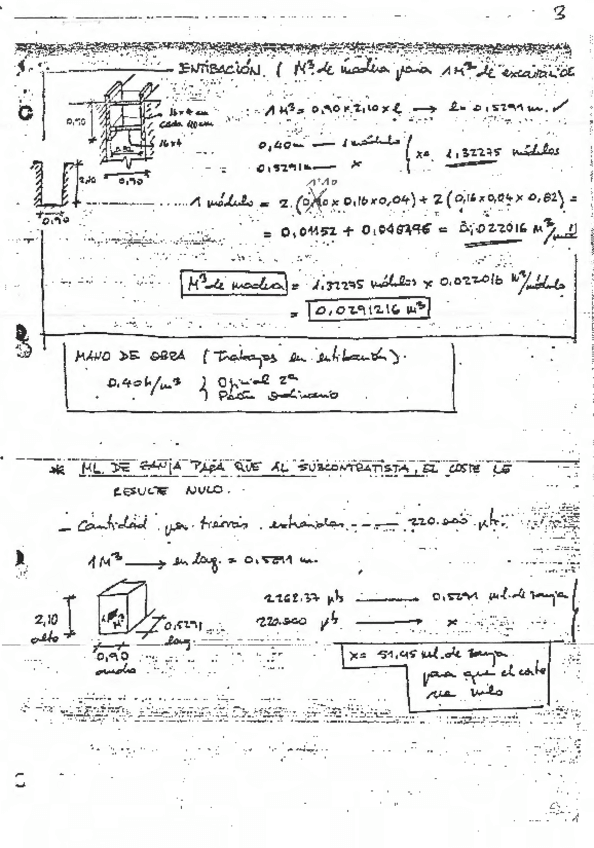 3
ENTIBACIÓN. ( M³ de madera para 1 M³ de excavación
1 M³ = 0,90 x 2,10 x l → l = 0,5291 m. ✓
0,90
16x4 cm
cada 40 cm
16x4
0,82
0,90
2,10
0,90
0,40m — 1 módulo
0,5291m — x
x = 1,32275 módulos
1 módulo = 2.(0,90 x 0,16 x 0,04) + 2(0,16 x 0,04 x 0,82) =
= 0,01152 + 0,010496 = 0,022016 M³/
M³ de madera = 1,32275 módulos x 0,022016 M³/módulo
= 0,0291216 M³
MANO DE OBRA ( Trabajos en entibación).
0.40h/m³ } Oficial 2ª
Peón Ordinario
* ML. DE ZANJA PARA QUE AL SUBCONTRATISTA, EL COSTE LE
RESULTE NULO.
- Cantidad por tierras extraidas ---- 220.000 pts.
1 M³ → en long. = 0,5291 m.
2,10
alto
1 M³
0,5291
long
0,90
ancho
2262.37 pts — 0,5291 ml. de zanja
220.000 pts → x
x = 51,45 ml. de zanja
para que el coste
sea nulo